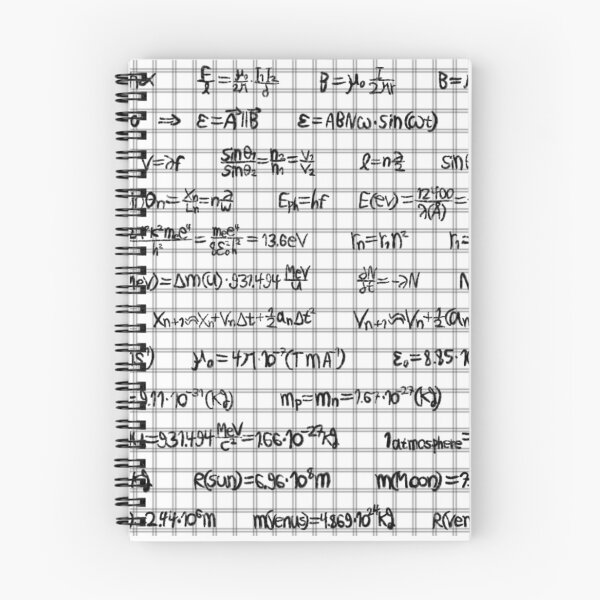 F/ℓ = μ₀/2π · I₁I₂/d B = μ₀ I/2πr B =
⇒ ε = A⃗ || B⃗ ε = ABNω·sin(ωt)
V = λf sinθ₁/sinθ₂ = n₂/n₁ = v₁/v₂ ℓ = n λ/2 sin
θₙ = Xₙ/Lₙ = n λ/w Eₚₕ = hf E(ev) = 12400/λ(Å) =
= 13.6eV rₙ = r₁n² r₁ =
MeV) = Δm(u)·931.494 MeV/u ∂N/∂t = -λN N
Xₙ₊₁ ≈ Xₙ + VₙΔt + ½aₙΔt² Vₙ₊₁ ≈ Vₙ + ½(aₙ
μ₀ = 4π·10⁻⁷(T m A⁻¹) ε₀ = 8.85·1
= 9.11·10⁻³¹(kg) mₚ = mₙ = 1.67·10⁻²⁷(kg)
= 931.494 MeV/c² = 1.66·10⁻²⁷kg 1atmosphere =
R(Sun) = 6.96·10⁸m m(Moon) = 7.
) = 2.44·10⁶m m(Venus) = 4.869·10²⁴kg R(Ven